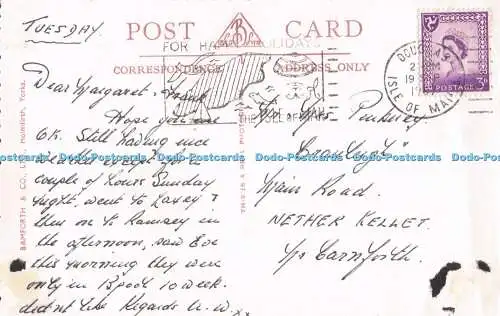 TUESDAY
POST CARD
FOR HAPPY HOLIDAYS
CORRESPONDENCE
ADDRESS ONLY
THE ISLE OF MAN
DOUGLAS
ISLE OF MAN
3D
Dear Margaret & Frank
Hope you are
O.K. Still having nice
weather except for a
couple of hours Sunday
night. went to Laxey &
then on to Ramsey in
the afternoon, saw Eve
this morning they were
only in B'pool 10 week.
didn't like Regards
xx
Mr & Mrs Pinkney
Main Road.
NETHER KELLET.
Nr Carnforth.
BAMFORTH & CO., LTD., Holmfirth, Yorks.
THIS IS A REAL PHOTO
Dodo-Postcards Dodo-Postcards Dodo-Postcards Dodo-Postcards Dodo-Postcards Dodo-Postcards